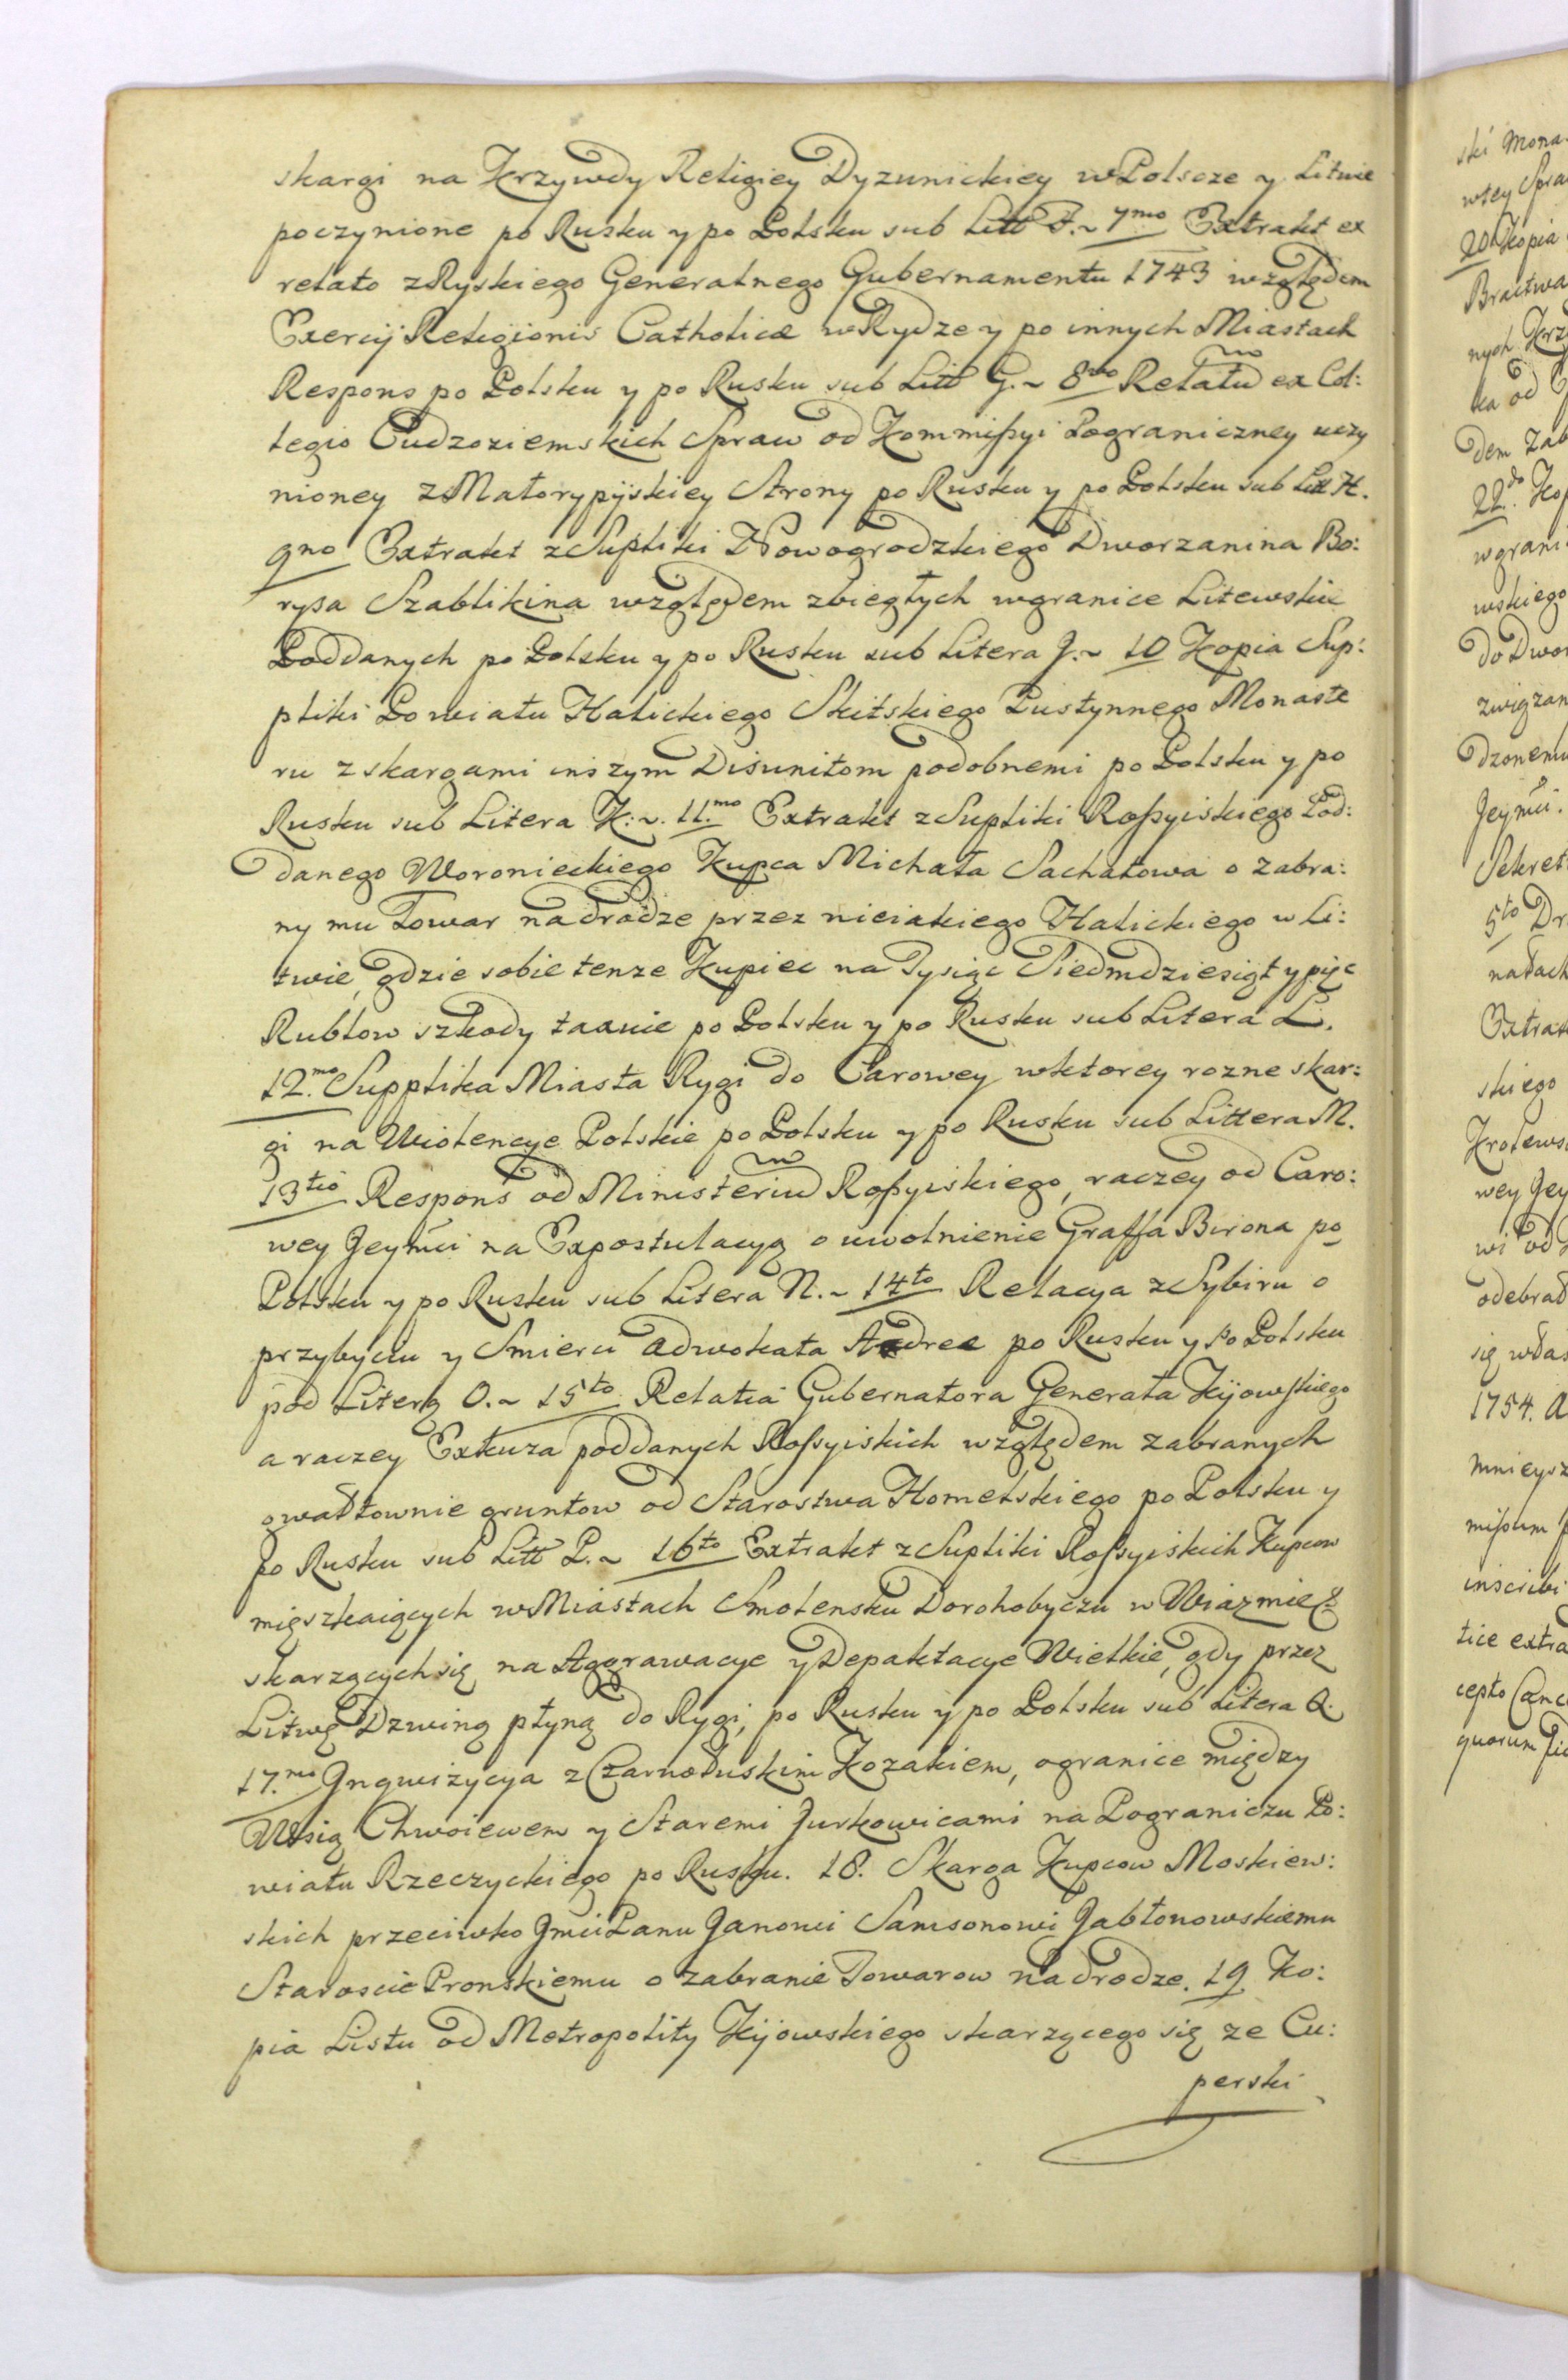 skargi na Krzywdy Religiey Dyzunickiey w Polscze y Litwie
poczynione po Rusku y po Polsku sub Litt F.~ 7mo Extrakt ex
relato z Ryskiego Generalnego Gubernamentu 1743 względem
Exercij Religionis Catholicæ w Rydze y po innych Miastach
Respons po Polsku y po Rusku sub Litt G.~ 8vo Relatũ ex Col:
legio Cudzoziemskich Spraw od Kommißyi Pograniczney uczy
nioney z Małoryßijskiey Strony po Rusku y po Polsku sub Litt H.
9no Extrakt z Supliki Nowogrodzkiego Dworzanina Bo:
rysa Szablikina względem zbiegłych w granice Litewskie
Poddanych po Polsku y po Rusku sub Litera J.~ 10 Kopia Sup:
pliki Powiatu Halickiego Skitskiego Pustynnego Monaste
ru z skargami inszym Disunitom podobnemi po Polsku y po
Rusku sub Litera K.~ 11.mo Extrakt z Supliki Roßyiskiego Pod:
danego Woronieckiego Kupca Michała Sachatowa o zabra:
ny mu Towar na drodze przez nieiakiego Halickiego w Li:
twie, gdzie sobie tenze Kupiec na Tysiąc Siedmdziesiąt y pięc
Rublow szkody taxuie po Polsku y po Rusku sub Litera L.
12.mo Supplika Miasta Rygi do Carowey w ktorey rozne skar:
gi na Wiolencye Polskie po Polsku y po Rusku sub Littera M.
13tio Respons od Ministeriũ Roßyiskiego, raczey od Caro:
wey Jeymci na Expostulacyą o uwolnienie Graffa Birona po
Polsku y po Rusku sub Litera N.~ 14to Relacya z Sybiru o
przybyciu y Smierci Adwokata Andree po Rusku y po Polsku
pod Literą O.~ 15to Relatia Gubernatora Generała Kijowskiego
a raczey Exkuza poddanych Roßyiskich względem zabranych
gwałtownie gruntow od Starostwa Homelskiego po Polsku y
po Rusku sub Litt P.~ 16to Extrakt z Supliki Roßyiskich Kupcow
mięszkaiących w Miastach Smolensku Dorohobyczu w Wiazmie &
skarzących się na Aggrawacye y Depaktacye Wielkie, gdy przez
Litwę Dzwiną płyną do Rygi, po Rusku y po Polsku sub Litera Q.
17.mo Jnqwizycya z Czarnoduskim Kozakiem, o granice między
Wsią Chwoiewem y Staremi Jurkowicami na Pograniczu Po:
wiatu Rzeczyckiego po Rusku. 18. Skarga Kupcow Moskiew:
skich przeciwko Jmci Panu Janowi Samsonowi Jabłonowskiemu
Staroscie Pronskiemu o zabranie Towarow na drodze. 19 Ko:
pia Listu od Metropolity Kijowskiego skarzącego się ze Cu:
perski